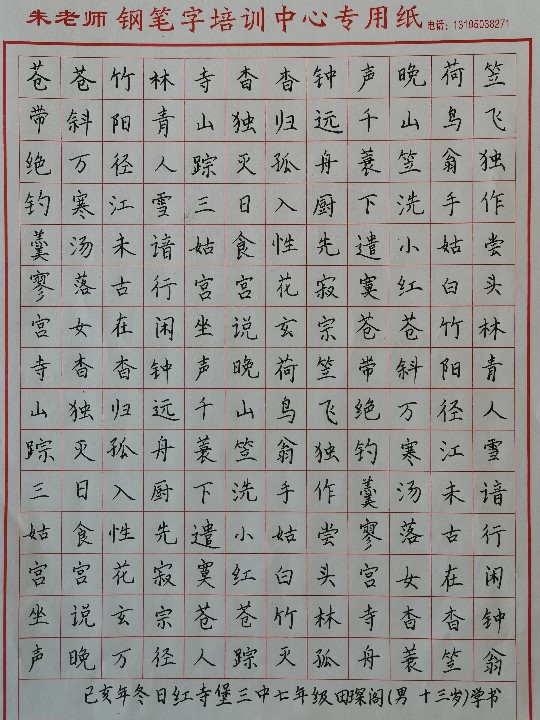 朱老师 钢笔字培训中心专用纸 电话：13195038271
苍苍竹林寺杳杳钟声晚荷笠
带斜阳青山独归远千山鸟飞
绝万径人踪灭孤舟蓑笠翁独
钓寒江雪三日入厨下洗手作
羹汤未谙姑食性先遣小姑尝
寥落古行宫宫花寂寞红白头
宫女在闲坐说玄宗苍苍竹林
寺杳杳钟声晚荷笠带斜阳青
山独归远千山鸟飞绝万径人
踪灭孤舟蓑笠翁独钓寒江雪
三日入厨下洗手作羹汤未谙
姑食性先遣小姑尝寥落古行
宫宫花寂寞红白头宫女在闲
坐说玄宗苍苍竹林寺杳杳钟
声晚万径人踪灭孤舟蓑笠翁
己亥年冬日红寺堡三中七年级田琛阁(男 十三岁)学书